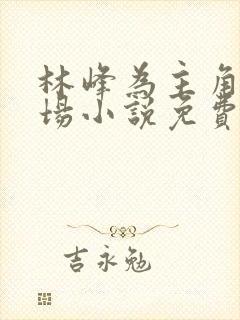 林峰為主角
場小說免費
吉永勉